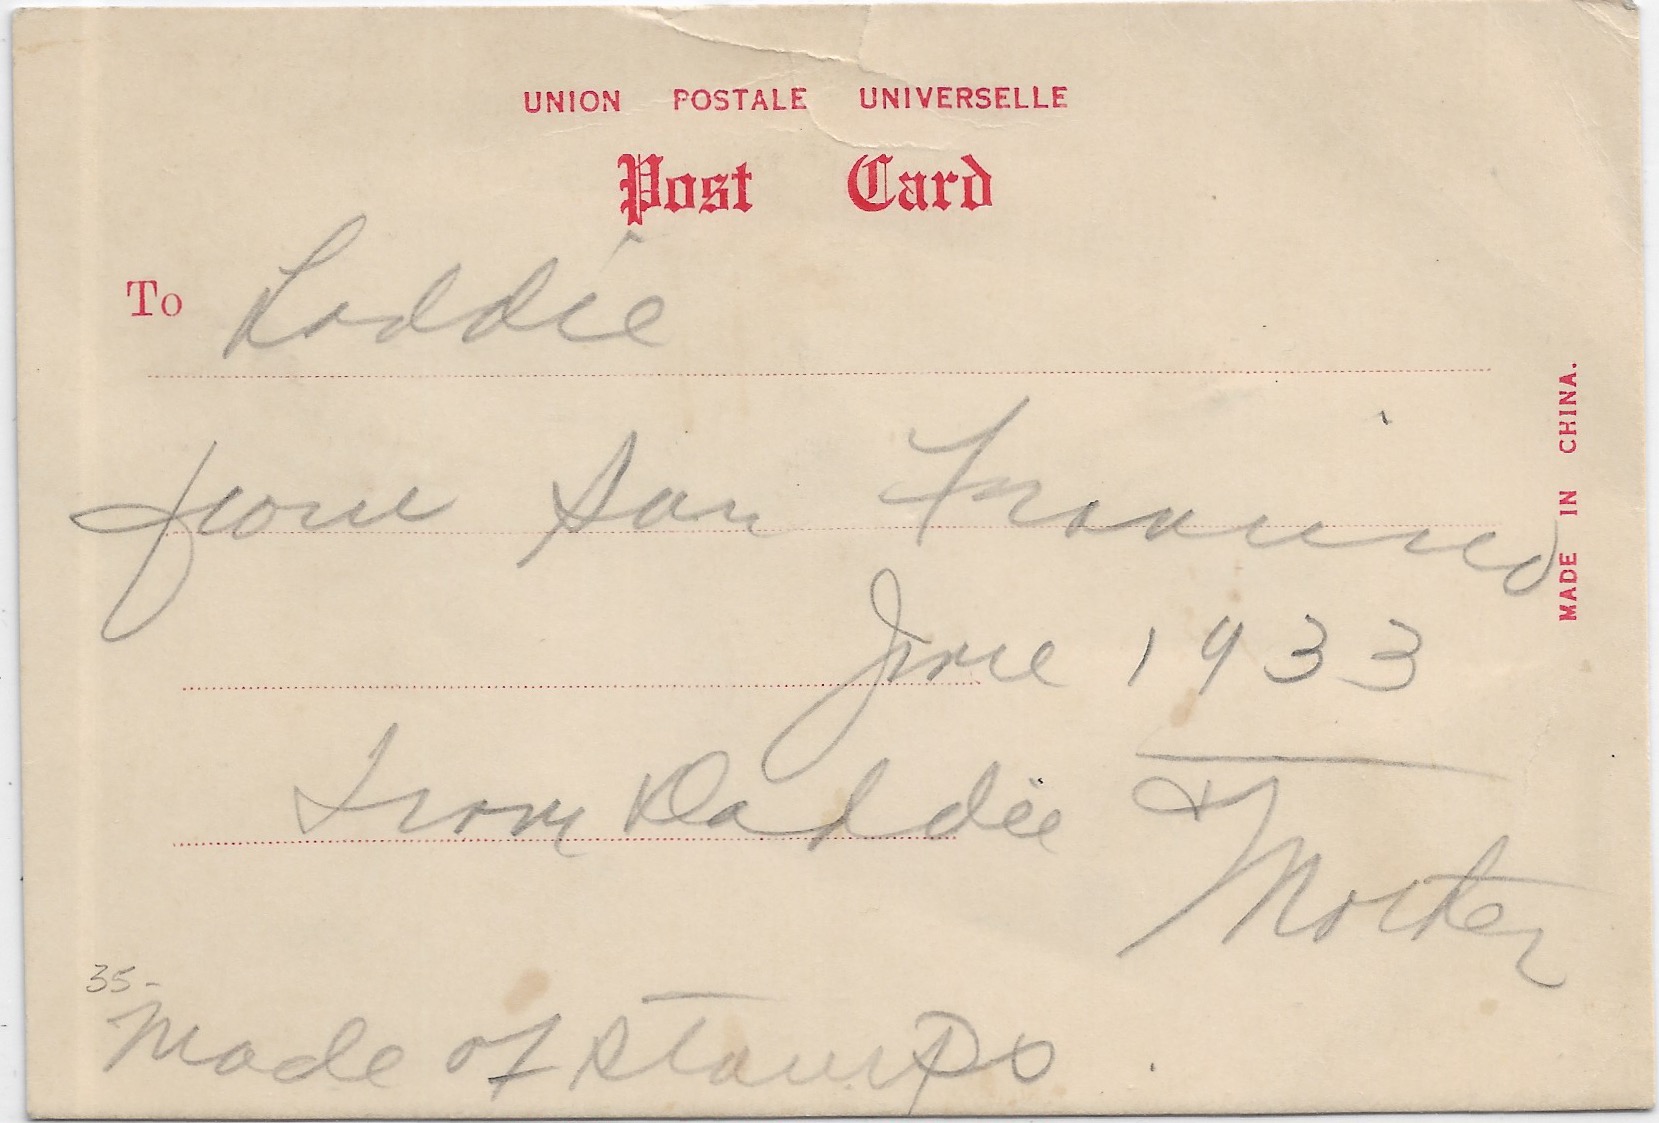 UNION POSTALE UNIVERSELLE
Post Card
To Laddie
from San Francisco
June 1933
From Daddie
& Mother
35-
Made of stamps
MADE IN CHINA.